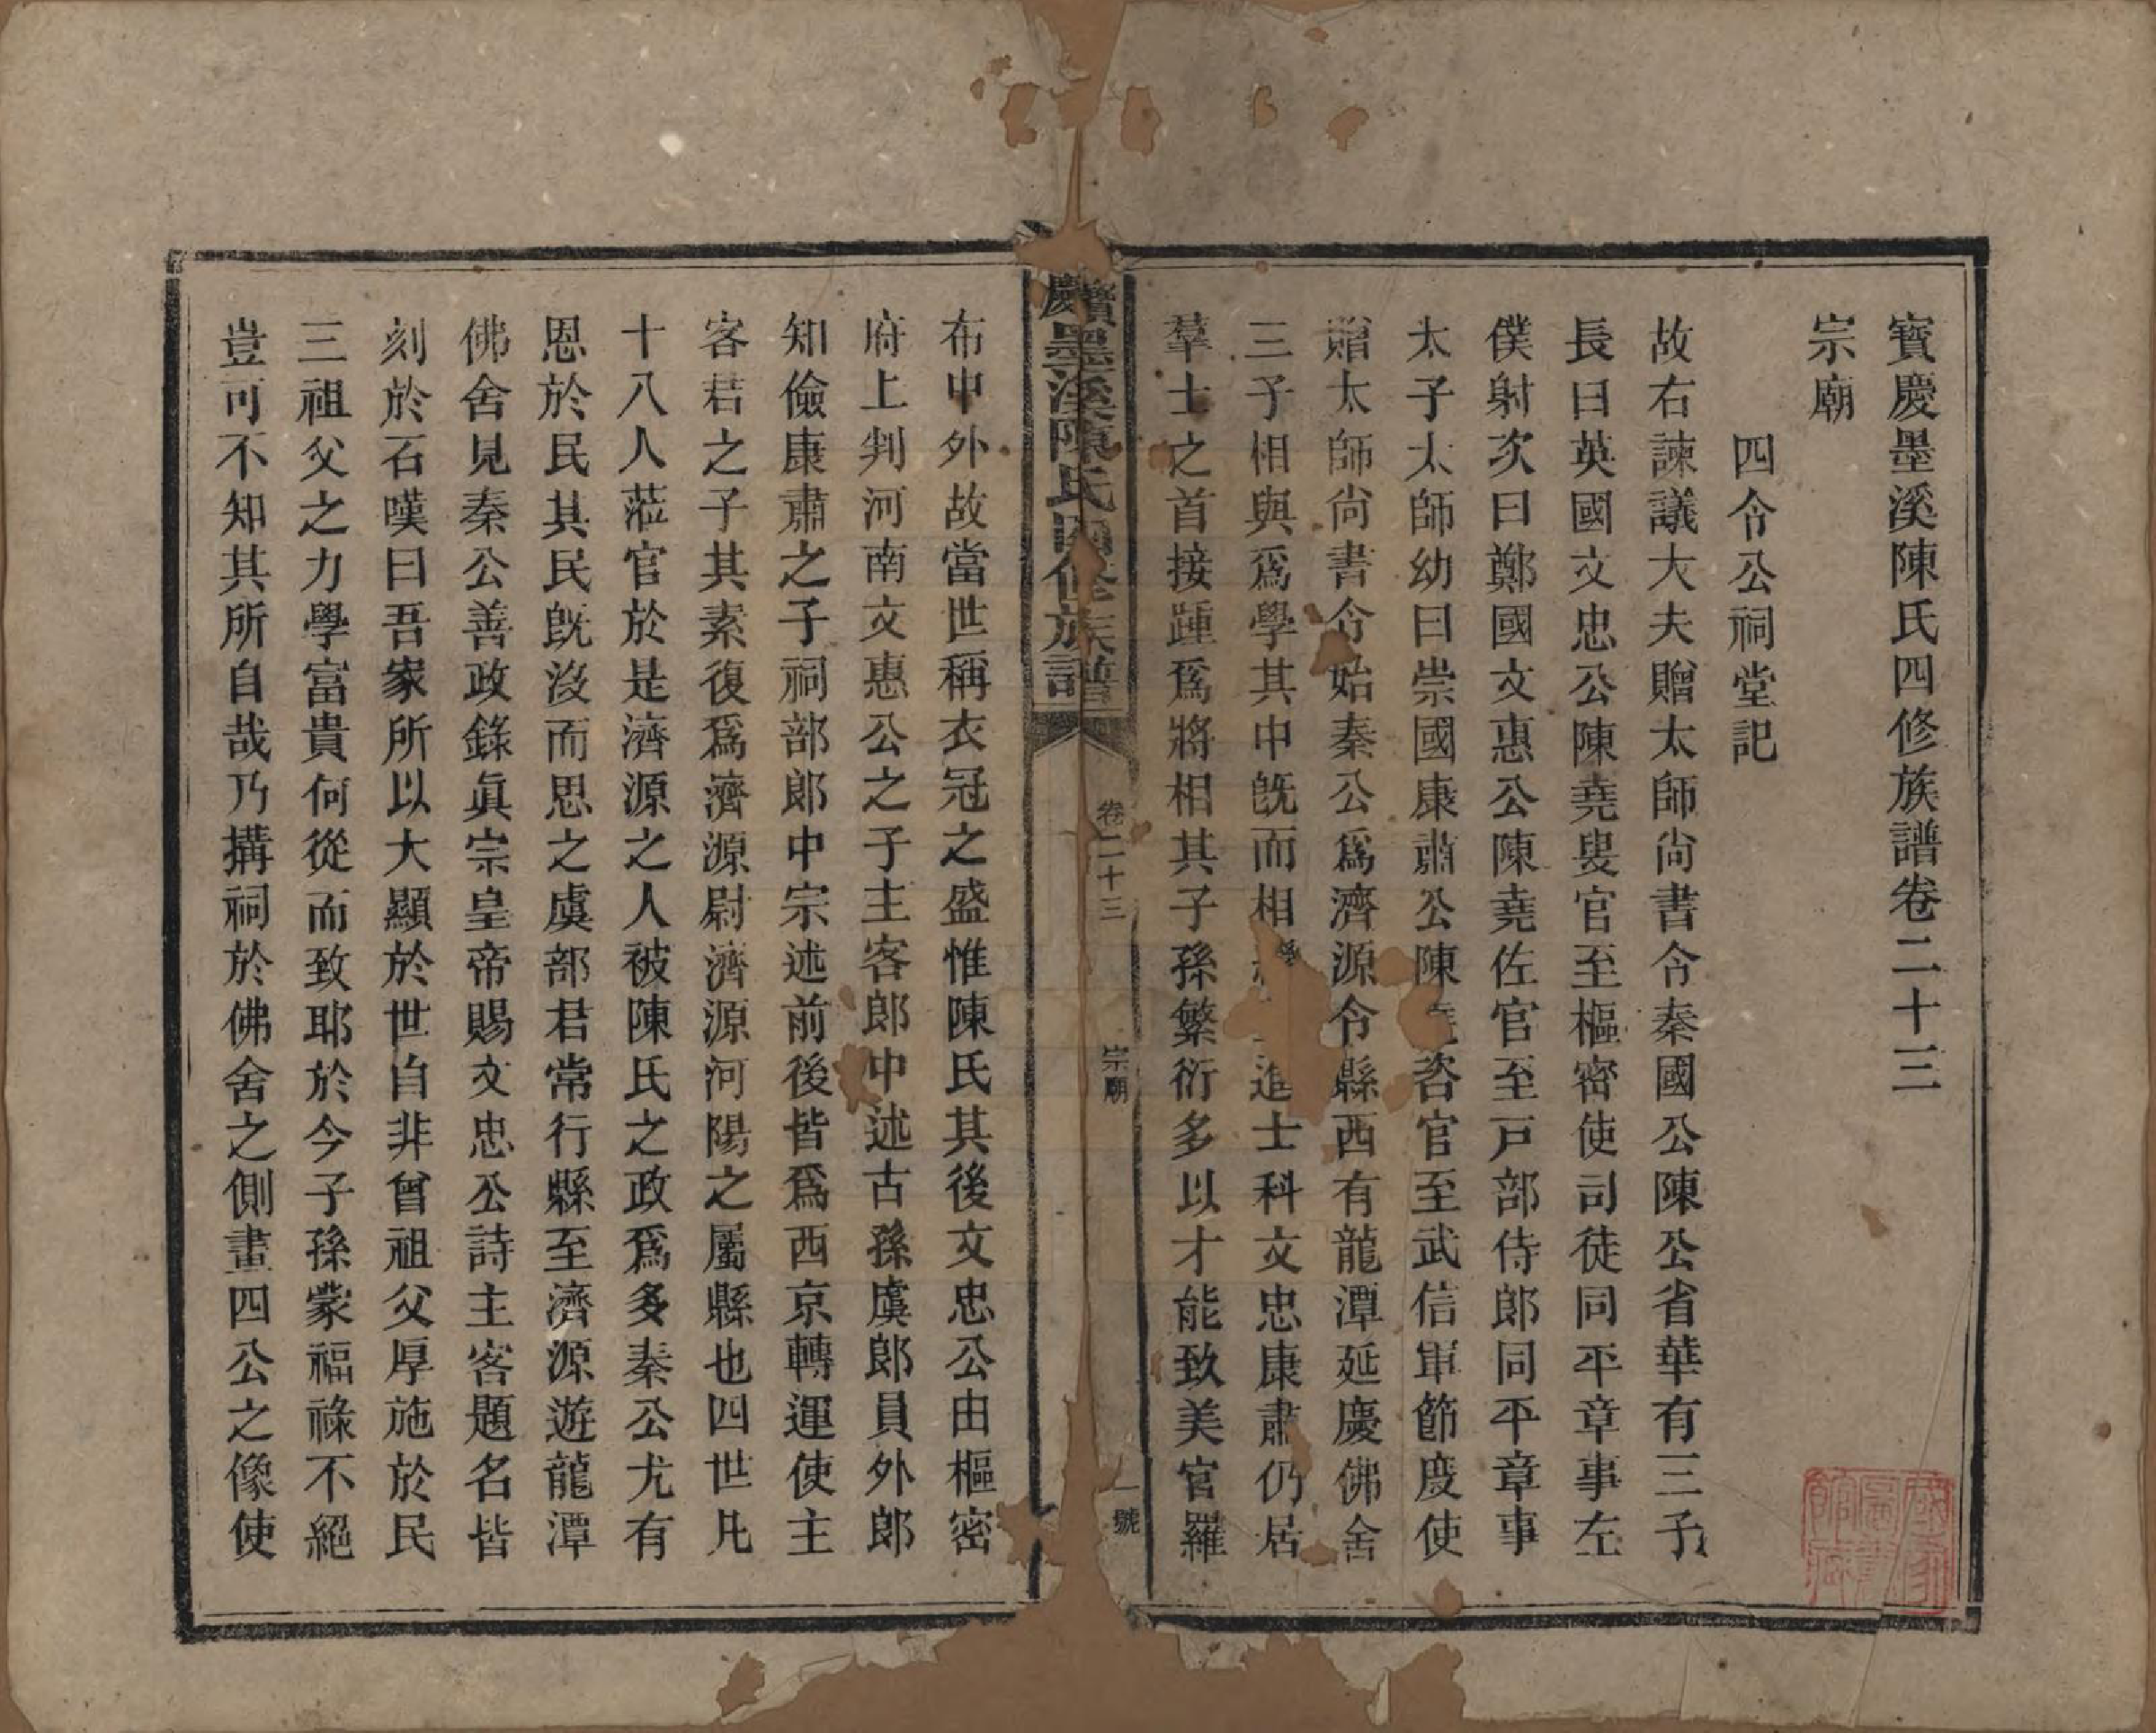 寶慶墨溪陳氏四修族譜卷二十三
宗廟
四令公祠堂記
故右諫議大夫贈太師尙書令秦國公陳公省華有三子
長曰英國文忠公陳堯叟官至樞密使司徒同平章事左
僕射次曰鄭國文惠公陳堯佐官至戸部侍郎同平章事
太子太師幼曰崇國康肅公陳咨官至武信軍節度使
贈太師尙書令始秦公爲濟源令縣西有龍潭延慶佛舍
三子相與爲學其中旣而相進士科文忠康肅仍居
羣士之首接踵爲將相其子孫繁衍多以才能致美官羅
寶慶墨溪陳氏四修族譜
卷二十三
宗廟
一號
布中外故當世稱衣冠之盛惟陳氏其後文忠公由樞密
府上判河南文惠公之子主客郎中述古孫虞郎員外郎
知儉康肅之子祠部郎中宗述前後皆爲西京轉運使主
客君之子其素復爲濟源尉濟源河陽之屬縣也四世凡
十八人蒞官於是濟源之人被陳氏之政爲多秦公尤有
恩於民其民旣沒而思之虞部君常行縣至濟源遊龍潭
佛舍見秦公善政錄眞宗皇帝賜文忠公詩主客題名皆
刻於石嘆曰吾家所以大顯於世自非曾祖父厚施於民
三祖父之力學富貴何從而致耶於今子孫蒙福祿不絕
豈可不知其所自哉乃搆祠於佛舍之側畫四公之像使